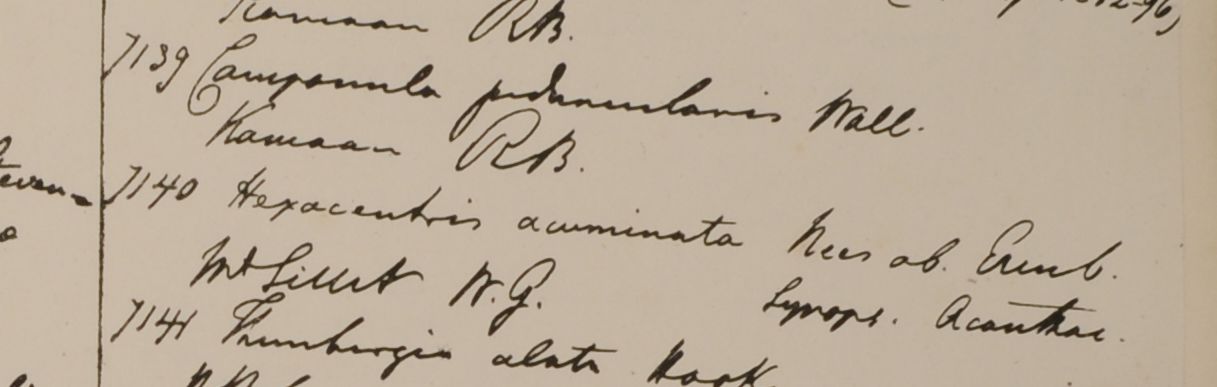 Kamaon RB.
7139 Campanula peduncularis Wall.
Kamaon RB.
7140 Hexacentris acuminata Nees ab. Esenb.
Mt Sillet W. G. Synops. Acanthac.
7141 Thunbergia alata Hook.